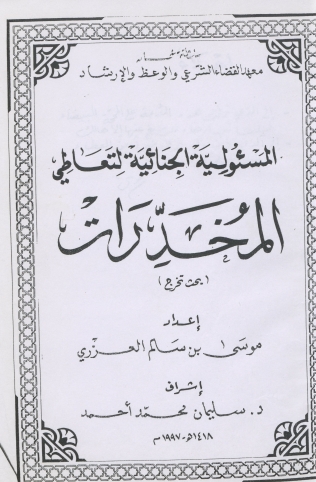 معهد القضاء الشرعي والوعظ والإرشاد
المسئولية الجنائية لتعاطي
المخدِّرات
(بحث تخرج)
إعداد
موسى بن سالم العزري
إشراف
د. سليمان محمد أحمد
١٤١٨هـ - ١٩٩٧م